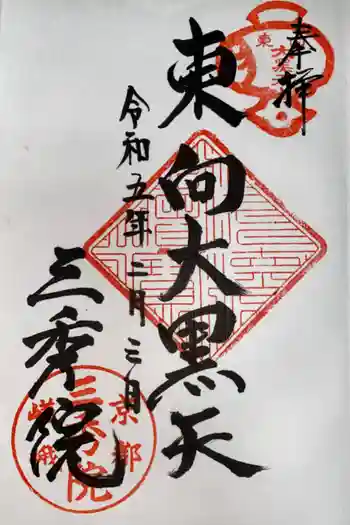 奉拝
東向大黒天
令和五年二月三日
三秀院
京都
三秀院
嵯峨